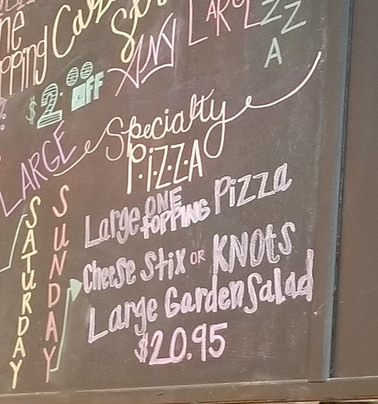 $2.00 OFF
ANY LARGE
PIZZA
LARGE Specialty
P.i.Z.Z.A
SATURDAY
SUNDAY
Large ONE TOPPING Pizza
Cheese Stix OR KNOTS
Large Garden Salad
$20.95